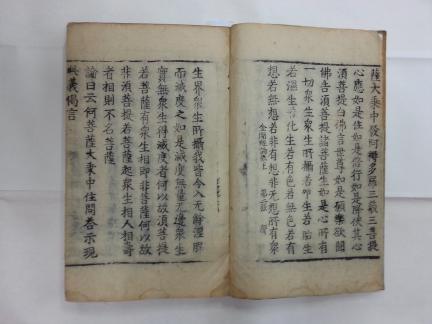 薩大乘中發阿耨多羅三藐三菩提
心應如是住如是修行如是降伏其心
須菩提白佛言世尊如是願樂欲聞
佛告須菩提諸菩薩生如是心所有
一切衆生衆生所攝若卵生若胎生
金剛經論卷上 第二張
若濕生若化生若有色若無色若有
想若無想若非有想非無想所有衆
生界衆生所攝我皆令入无餘涅槃
而滅度之如是滅度無量无邊衆生
實無衆生得滅度者何以故須菩提
若菩薩有衆生相即非菩薩何以故
非須菩提若菩薩起衆生相人相壽
者相則不名菩薩
論曰云何菩薩大乘中住問荅示現
此義偈言